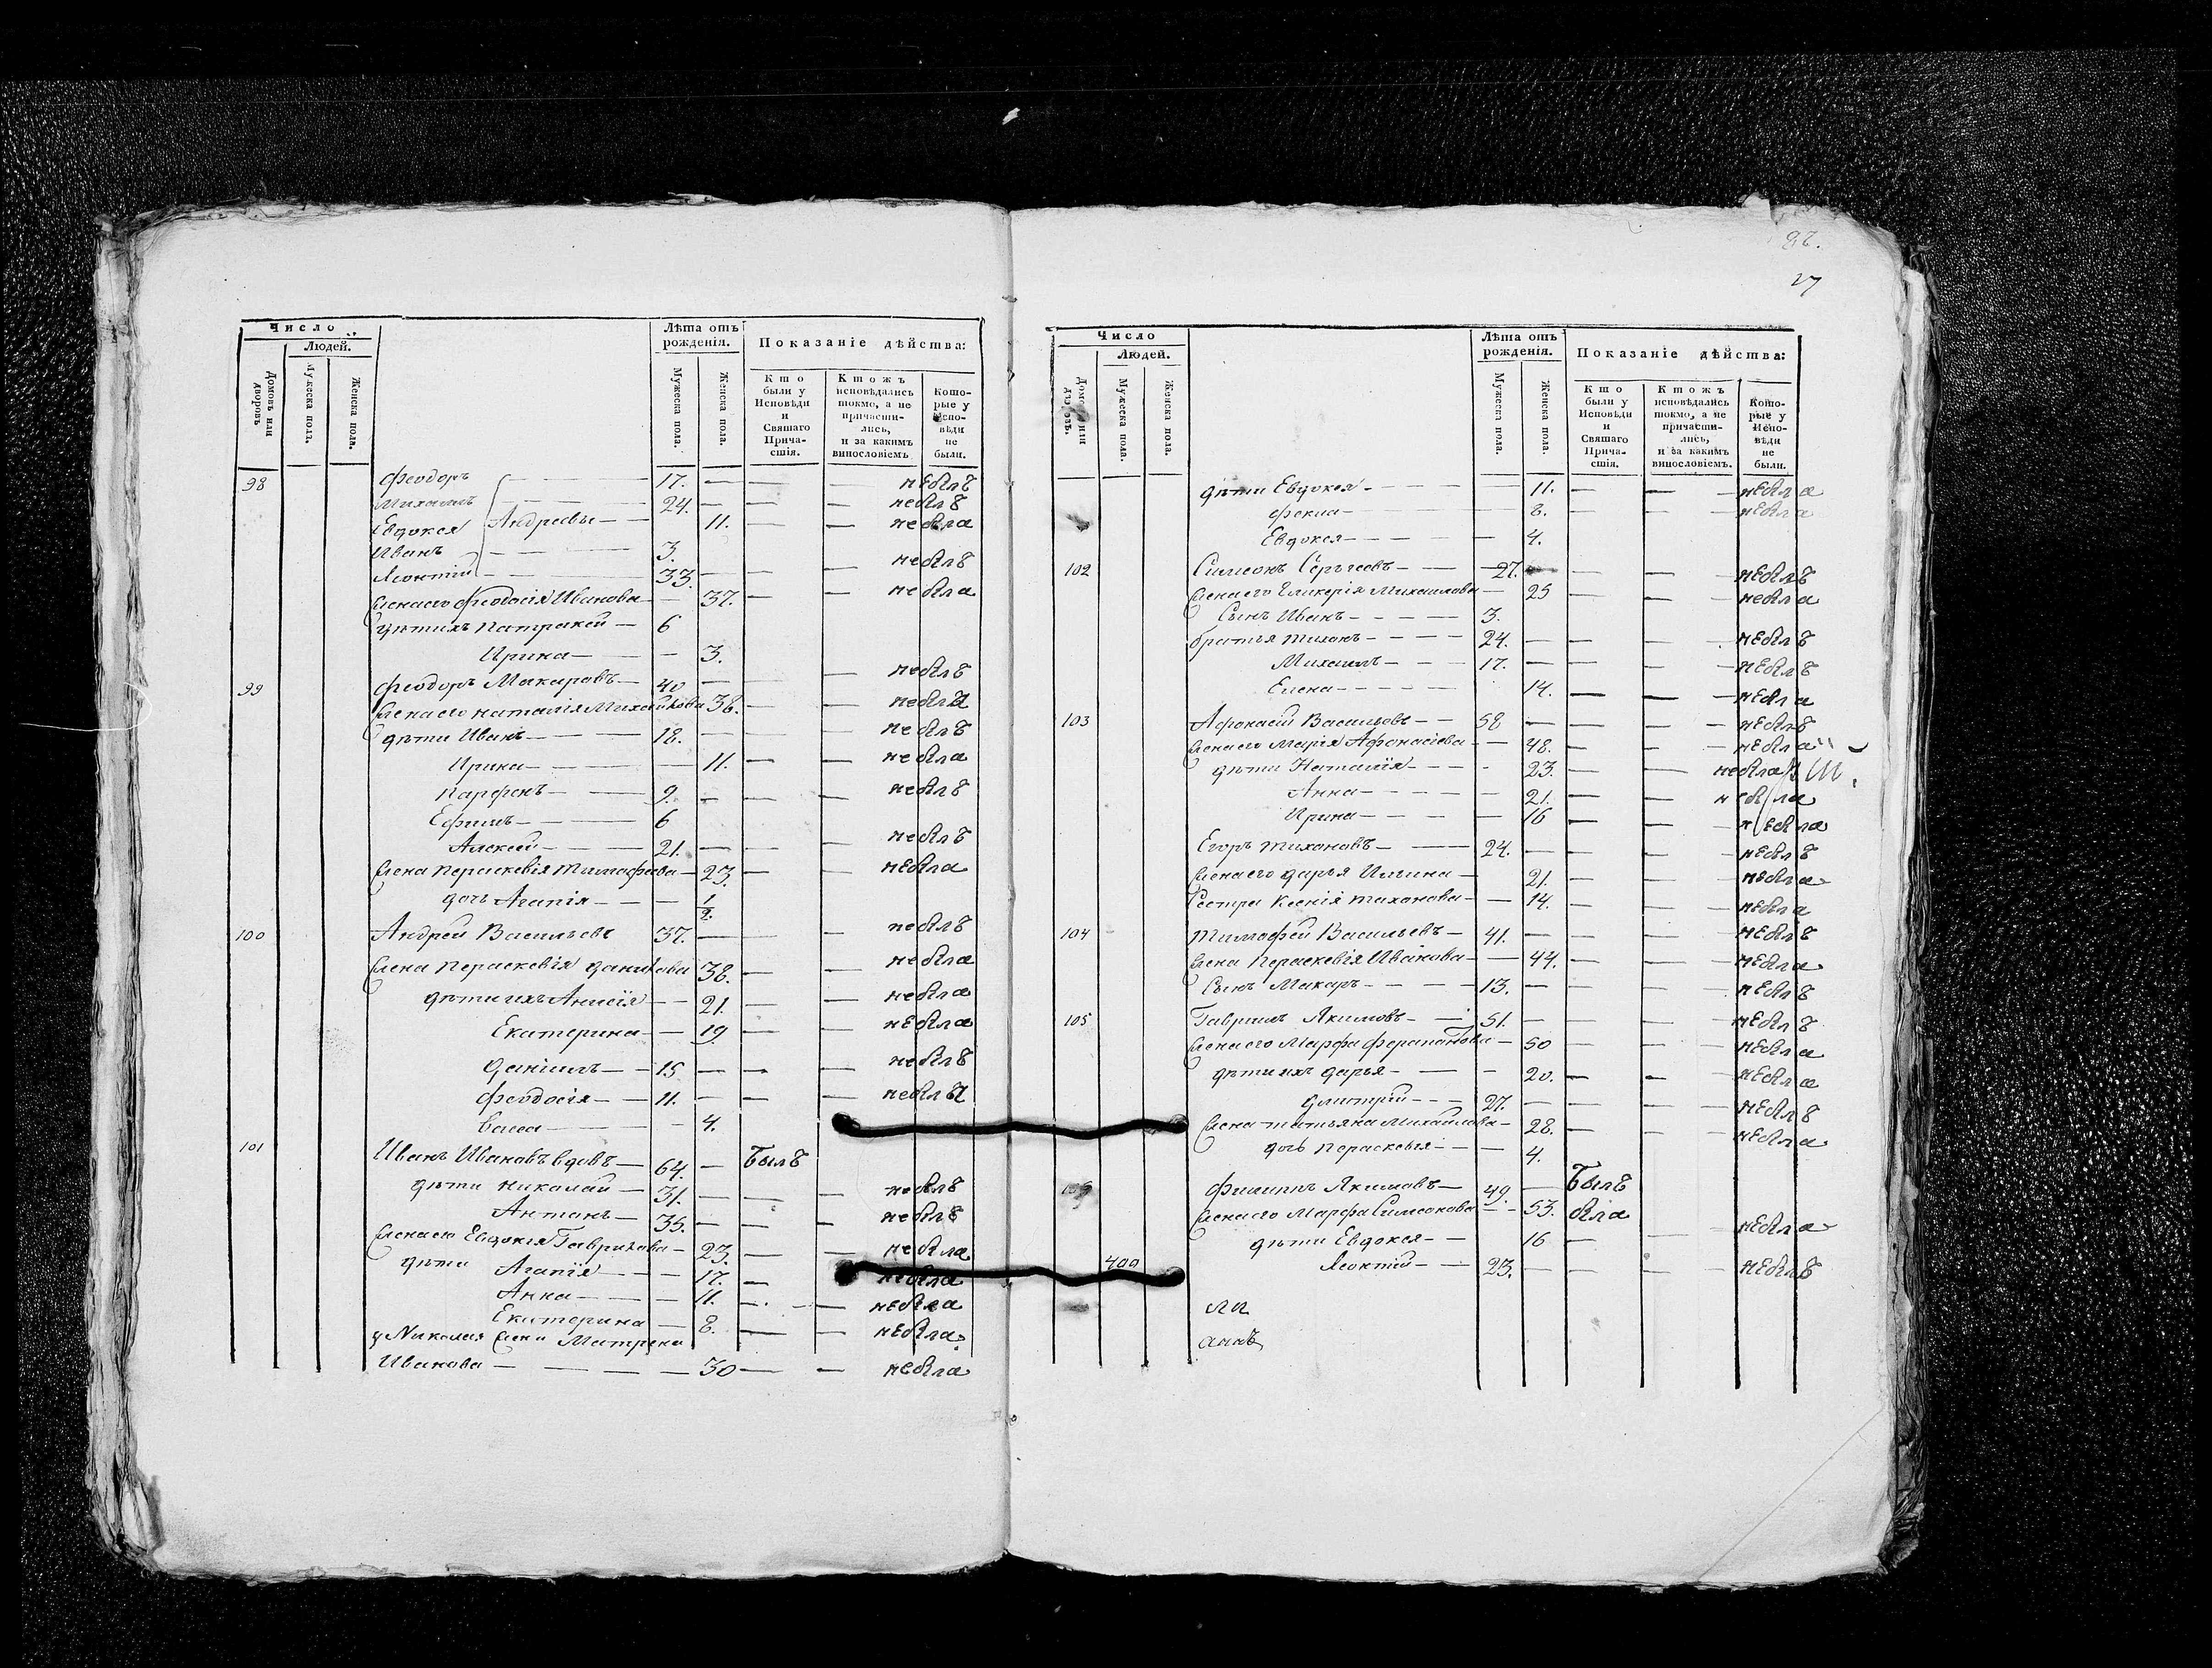 Число
Людей.
Лѣта отъ рожденія.
Показаніе дѣйства:
Домовъ или дворовъ
Мужеска пола.
Женска пола.
Мужеска пола.
Женска пола.
Кто были у Исповѣди и Святаго Прича-стія.
Ктожъ исповѣдались токмо, а не причасти-лись, и за какимъ винословіемъ
Кото-рые у Испо-вѣди не были.
98 Феодоръ — 17. — — небылъ
Михаилъ — 24. — — небылъ
Евдокея Андреевы — 11. — — небыла
Иванъ — 3.
Леонтій — 33. — — небылъ
Жена его Феодосія Иванова — 37. — — небыла
дѣти ихъ Патракей — 6
Ирина — 3.
99 Феодоръ Макаровъ — 40 — — небылъ
Жена его Наталія Михайлова 38. — — небыла
дѣти Иванъ — 18. — — небылъ
Ирина — 11. — — небыла
Парфенъ — 9. — — небылъ
Ефимъ — 6
Алексей — 21. — — небылъ
Жена Параскевія Тимофеева — 23. — — небыла
дочь Агапія — 1/2.
100 Андрей Васильевъ 37. — — небылъ
Жена Параскевія Данилова 38. — — небыла
дѣти ихъ Анисія — 21. — — небыла
Екатерина — 19 — — небыла
Даніилъ — 15 — — небылъ
Феодосія — 11. — — небыла
Васса — 4.
101 Иванъ Ивановъ вдовъ — 64. — Былъ
дѣти Николай — 31. — — небылъ
Антонъ — 35. — — небылъ
Жена его Евдокея Гаврилова — 23. — — небыла
дѣти Агапія — 17. — небыла
Анна — 11. — — небыла
Екатерина — 8. — — небыла
у Николая жена Матрена
Иванова — 30 — — небыла
27
Число
Людей.
Лѣта отъ рожденія.
Показаніе дѣйства:
Мужеска пола.
Женска пола.
Мужеска пола.
Женска пола.
Кто были у Исповѣди и Святаго Прича-стія.
Ктожъ исповѣдались токмо, а не причасти-лись, и за какимъ винословіемъ.
Кото-рые у Испо-вѣди не были.
дѣти Евдокея — 11. — — небыла
Фекла — 8. — — небыла
Евдокея — 4.
102 Симеонъ Сергеевъ — 27. — — небылъ
Жена его Гликерія Михаилова — 25 — — небыла
Сынъ Иванъ — 3.
братья Тихонъ — 24. — — небылъ
Михаилъ — 17. — — небылъ
Елена — 14. — — небыла
103 Афонасій Васильевъ — 58 — — небылъ
Жена его Марія Афонасіева — 48. — — небыла
дѣти Наталія — 23. — — небыла
Анна — 21. — — небыла
Ирина — 16 — — небыла
Егоръ Тихоновъ — 24. — — небылъ
Жена его Дарья Ильина — 21. — — небыла
Сестра Ксенія Тихонова — 14. — — небыла
104 Тимофей Васильевъ — 41. — — небылъ
Жена Параскевія Иванова — 44. — — небыла
Сынъ Макаръ — 13. — — небылъ
105 Гавриилъ Акимовъ — 51. — — небылъ
Жена его Марфа Ферапонтова — 50 — — небыла
дѣти ихъ Дарья — 20. — — небыла
Дмитрій — 27. — — небылъ
Жена Татьяна Михаилова — 28. — — небыла
дочь Параскевія — 4.
Филиппъ Акимовъ — 49. — Былъ
Жена его Марфа Симеонова — 53. была
дѣти Евдокея — 16 — — небыла
400 Леонтій — 23. — — небылъ